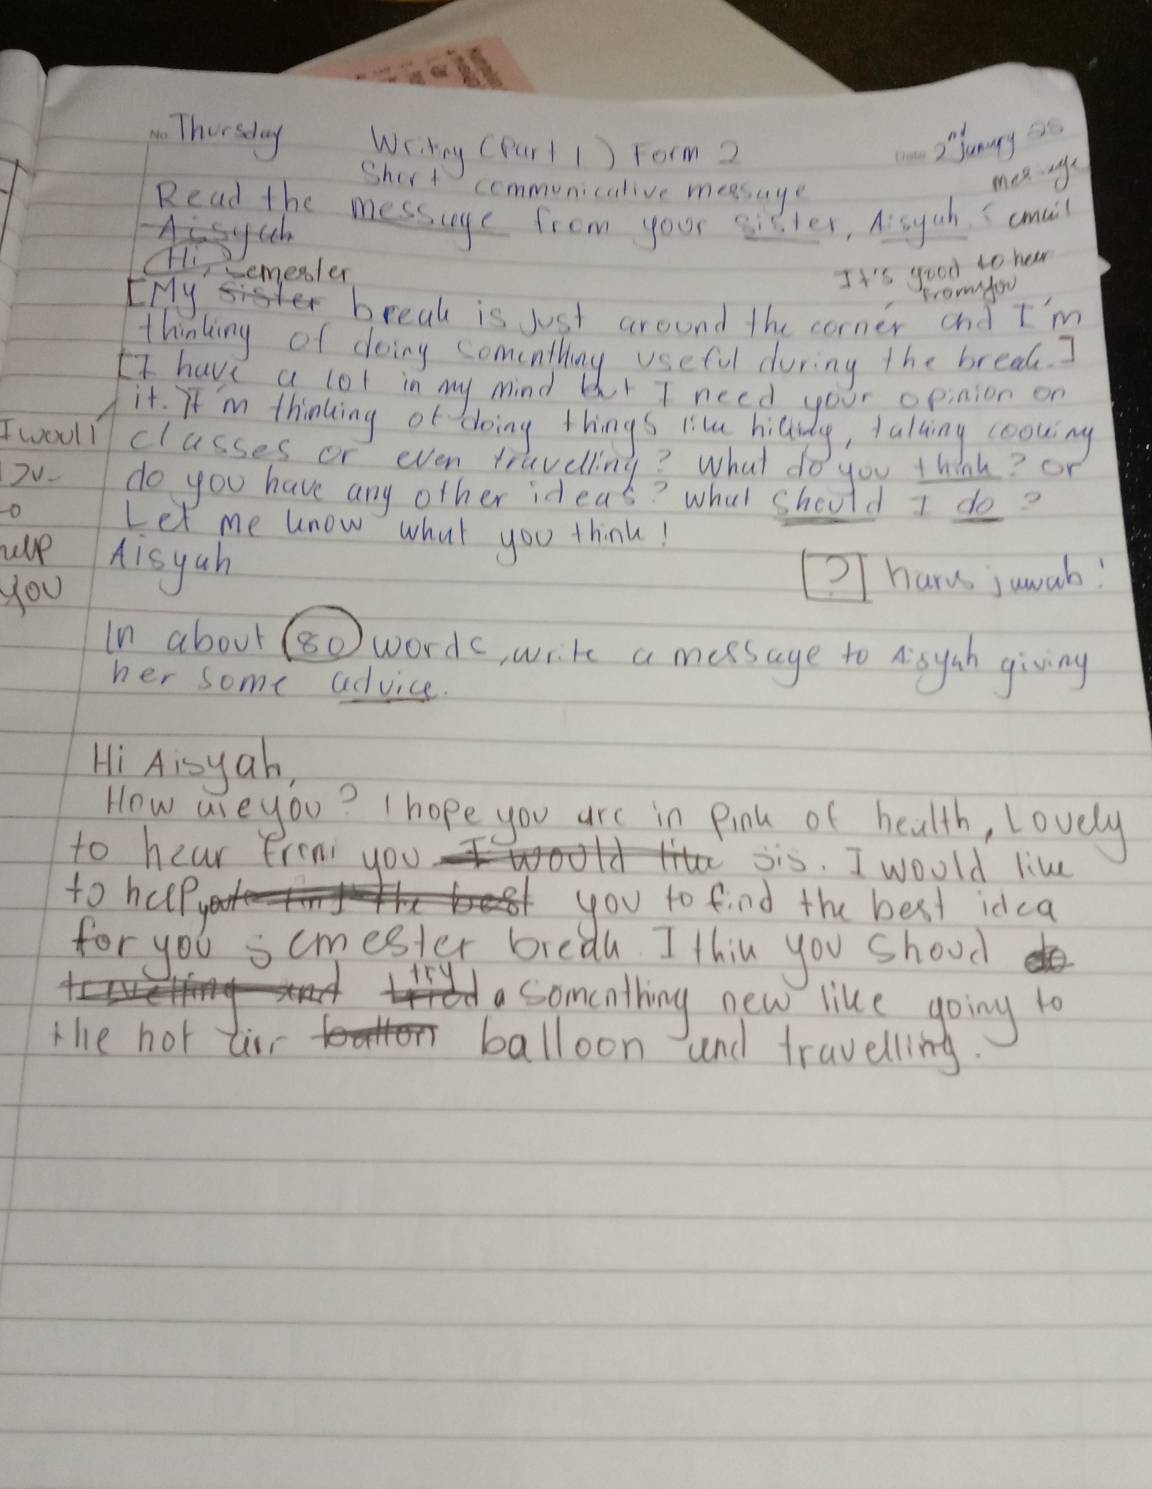 No. Thursday Writing (Part 1) Form 2 Date 2nd January 25
Short communicative message
message
Read the message from your sister, Aisyah. email
Aisyah
Hi, It's good to hear
semester from you
[My sister break is just around the corner and I'm
thinking of doing somenthing useful during the break.]
[I have a lot in my mind but I need your opinion on
it. I'm thinking of doing things like hiking, talking cooking
I would classes or even travelling? What do you think? or
do you have any other ideas? what should I do?
Let me know what you think!
help Aisyah
you [?] harus jawab!
In about 80 words, write a message to Aisyah giving
her some advice.
Hi Aisyah,
How are you? I hope you are in pink of health, Lovely
to hear from you I would like sis. I would like
to help find the best you to find the best idea
for you semester break. I thik you shoud do
travelling and try
tried a somenthing new like going to
the hot air balloon balloon and travelling.